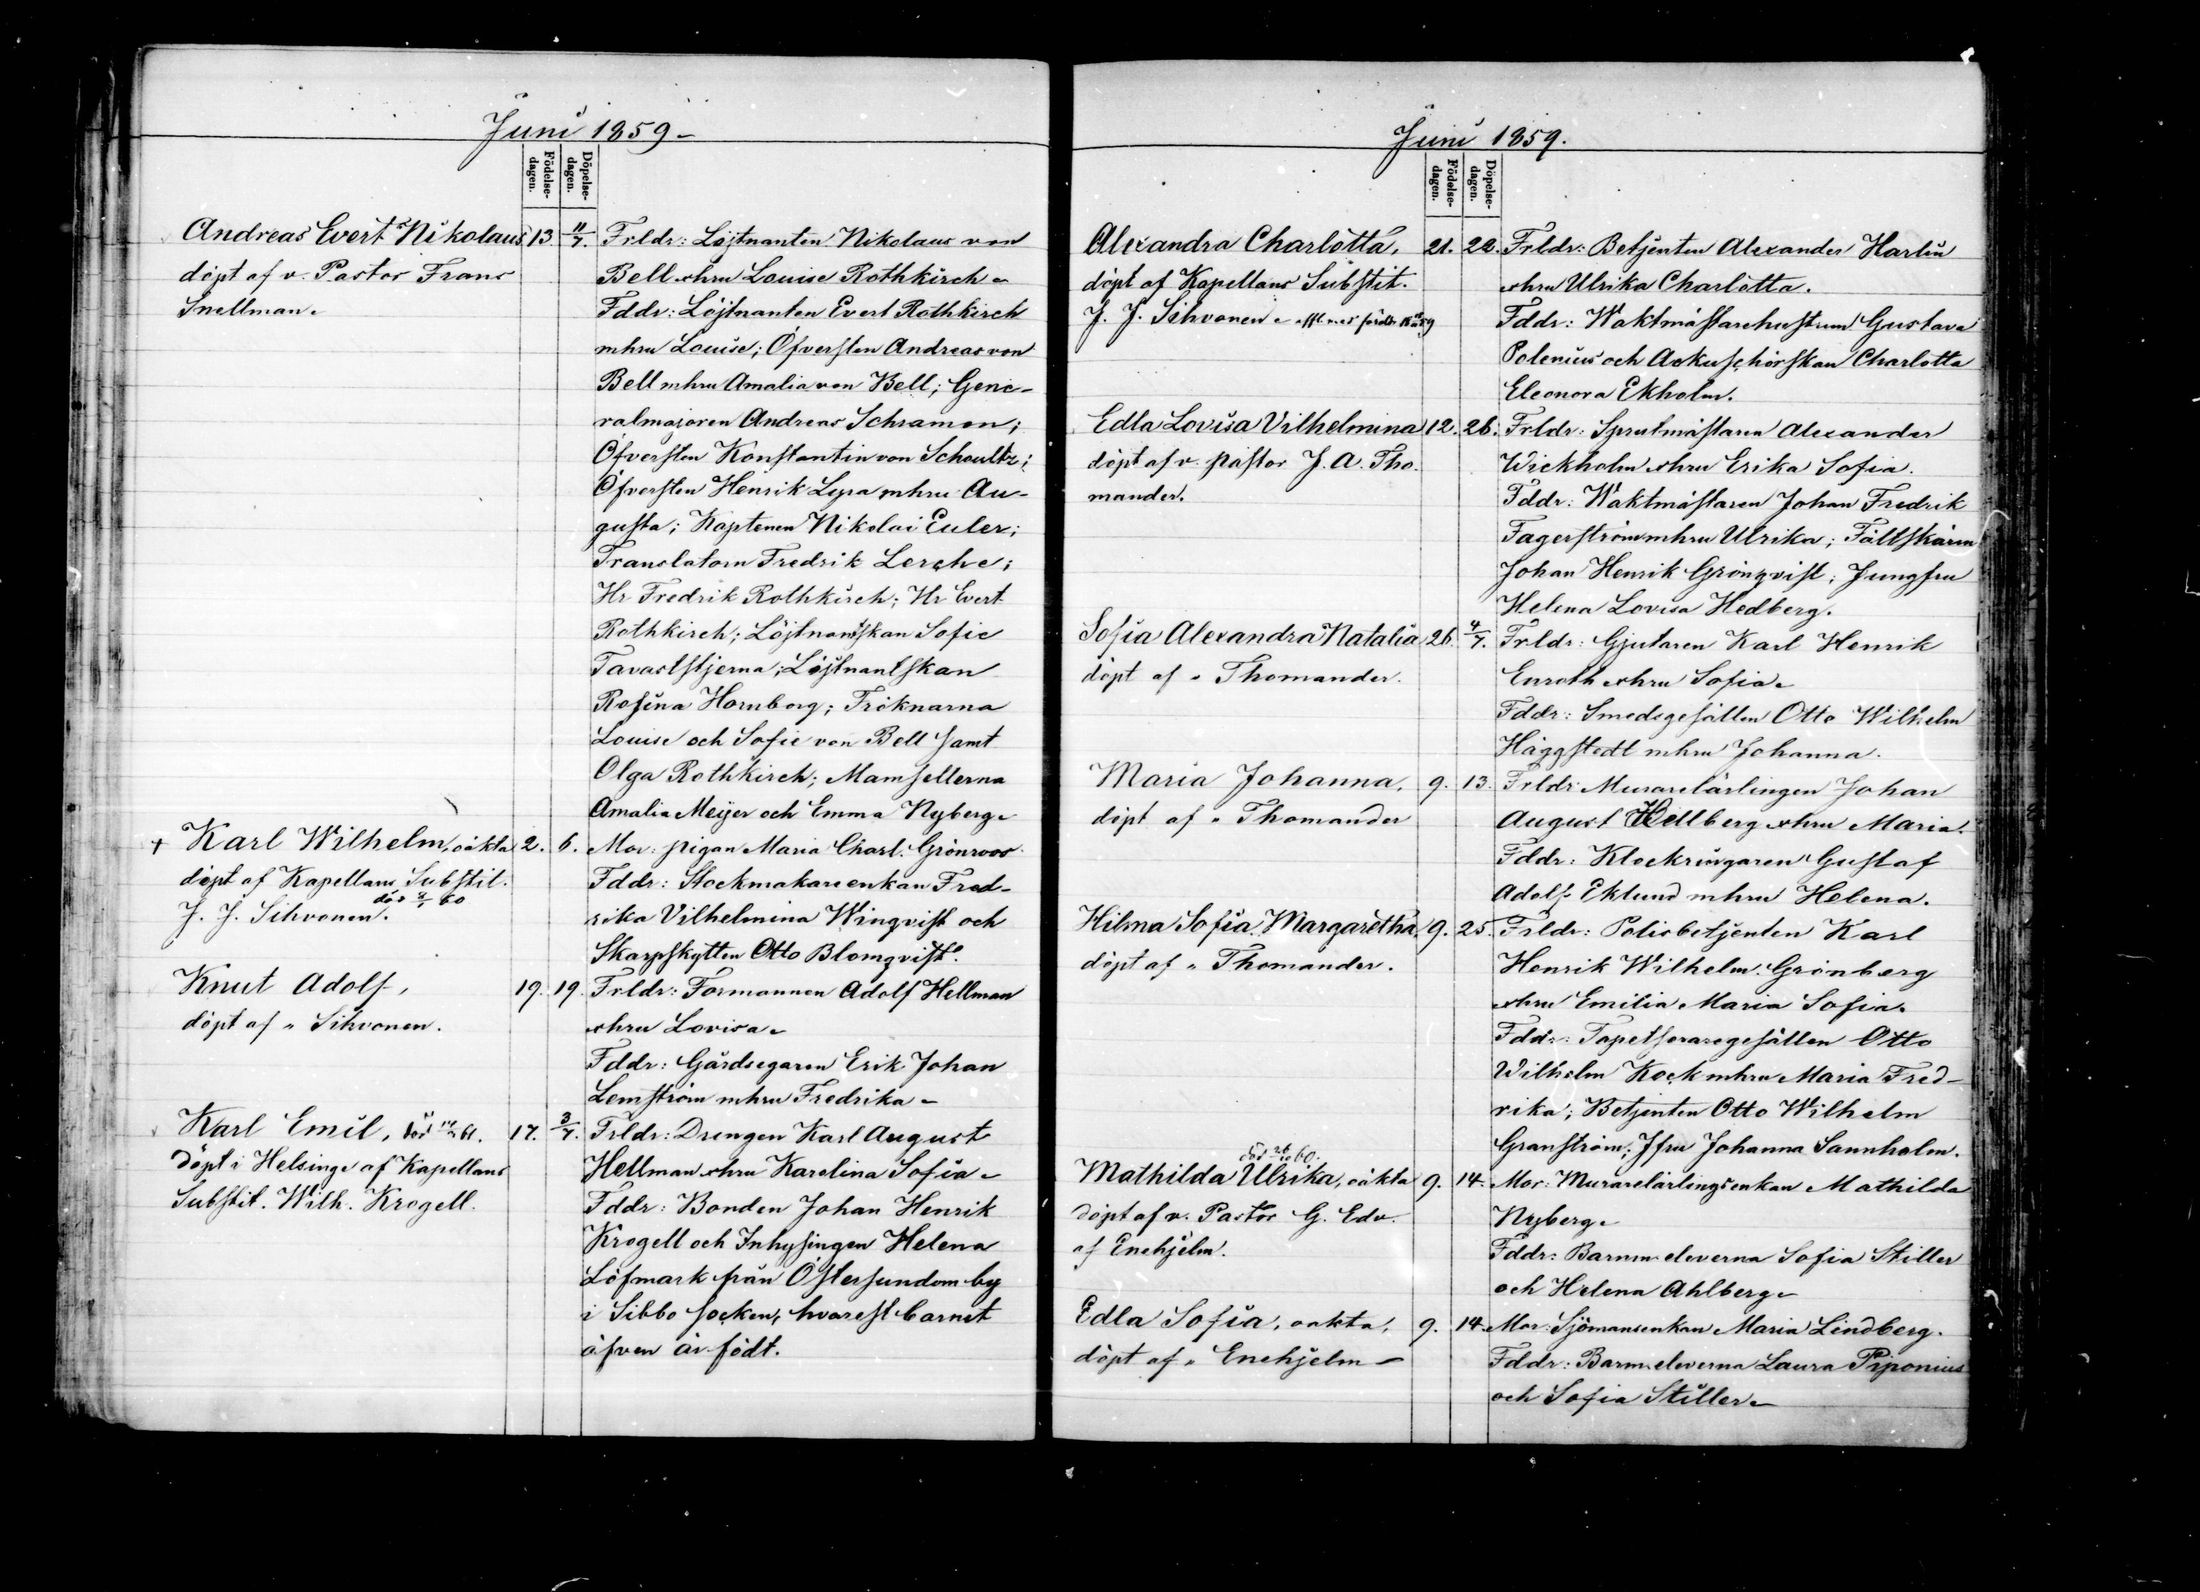 Juni 1859.
Födelse-
dagen.
Döpelse-
dagen.
Andreas Evert Nikolaus 13 11/7. Frldr: Löjtnanten Nikolaus von
döpt af v. Pastor Frans Bell o hru Louise Rothkirch.
Snellman. Fddr: Löjtnanten Evert Rothkirch
mhru Louise; Öfversten Andreas von
Bell mhru Amalia von Bell; Gene-
ralmajoren Andreas Schramon;
Öfversten Konstantin von Schoultz;
Öfversten Henrik Lyra mhru Au-
gusta; Kaptenen Nikolai Euler;
Translatorn Fredrik Lerche;
Hr Fredrik Rothkirch; Hr Evert
Rothkirch; Löjtnantskan Sofie
Tavaststjerna; Löjtnantskan
Rosina Hornborg; Fröknarna
Louise och Sofie von Bell samt
Olga Rothkirch; Mamsellerna
Amalia Meijer och Emma Nyberg.
+ Karl Wilhelm, oäkta 2. 6. Mor: pigan Maria Charl. Grönroos
döpt af Kapellans Substit. Fddr: Stockmakareenkan Fred-
J. J. Sihvonen. död 60 rika Vilhelmina Winqvist och
Skarpskytten Otto Blomqvist.
Knut Adolf, 19. 19. Frldr: Formannen Adolf Hellman
döpt af " Sihvonen. ohru Lovisa.
Fddr: Gårdsegaren Erik Johan
Lemström mhru Fredrika.
Karl Emil, död 61. 17. 3/7. Frldr: Drengen Karl August
Döpt i Helsinge af Kapellans Hellman ohru Karolina Sofia.
Substit. Wilh. Krogell. Fddr: Bonden Johan Henrik
Krogell och Inhysingen Helena
Löfmark från Östersundom by
i Sibbo socken, hvarest barnet
äfven är födt.
Juni 1859.
Födelse-
dagen.
Döpelse-
dagen.
Alexandra Charlotta, 21. 22. Frldr: Betjenten Alexander Harlin
döpt af Kapellans Substit. ohru Ulrika Charlotta.
J. J. Sihvonen. Fddr: Waktmästarehustrun Gustava
Polenius och Ackuschörskan Charlotta
Eleonora Ekholm.
Edla Lovisa Vilhelmina 12. 26. Frldr: Sprutmästaren Alexander
döpt af v. pastor J. A. Tho- Wickholm ohru Erika Sofia.
mander. Fddr: Waktmästaren Johan Fredrik
Fagerström mhru Ulrika; Fältskärn
Johan Henrik Grönqvist; Jungfru
Helena Lovisa Hedberg.
Sofia Alexandra Natalia 26. 4/7. Frldr: Gjutaren Karl Henrik
döpt af " Thomander. Enroth ohru Sofia.
Fddr: Smedsgesällen Otto Wilhelm
Häggstedt mhru Johanna.
Maria Johanna, 9. 13. Frldr: Murarelärlingen Johan
döpt af " Thomander August Hellberg ohru Maria.
Fddr: Klockringaren Gustaf
Adolf Eklund mhru Helena.
Hilma Sofia Margaretha. 9. 25. Frldr: Polisbetjenten Karl
döpt af " Thomander. Henrik Wilhelm Grönberg
ohru Emilia Maria Sofia.
Fddr: Tapetseraregesällen Otto
Wilhelm Kock mhru Maria Fred-
rika; Betjenten Otto Wilhelm
Granström; Jfru Johanna Sannholm.
död 60.
Mathilda Ulrika, oäkta 9. 14. Mor: Murarelärlingsenkan Mathilda
döpt af v. Pastor G. Edv. Nyberg.
af Enehjelm. Fddr: Barnm. eleverna Sofia Stiller
och Helena Ahlberg.
Edla Sofia, oakta, 9. 14. Mor: Sjömansenkan Maria Lindberg.
döpt af " Enehjelm Fddr: Barnm. eleverna Laura Piponius
och Sofia Stiller.